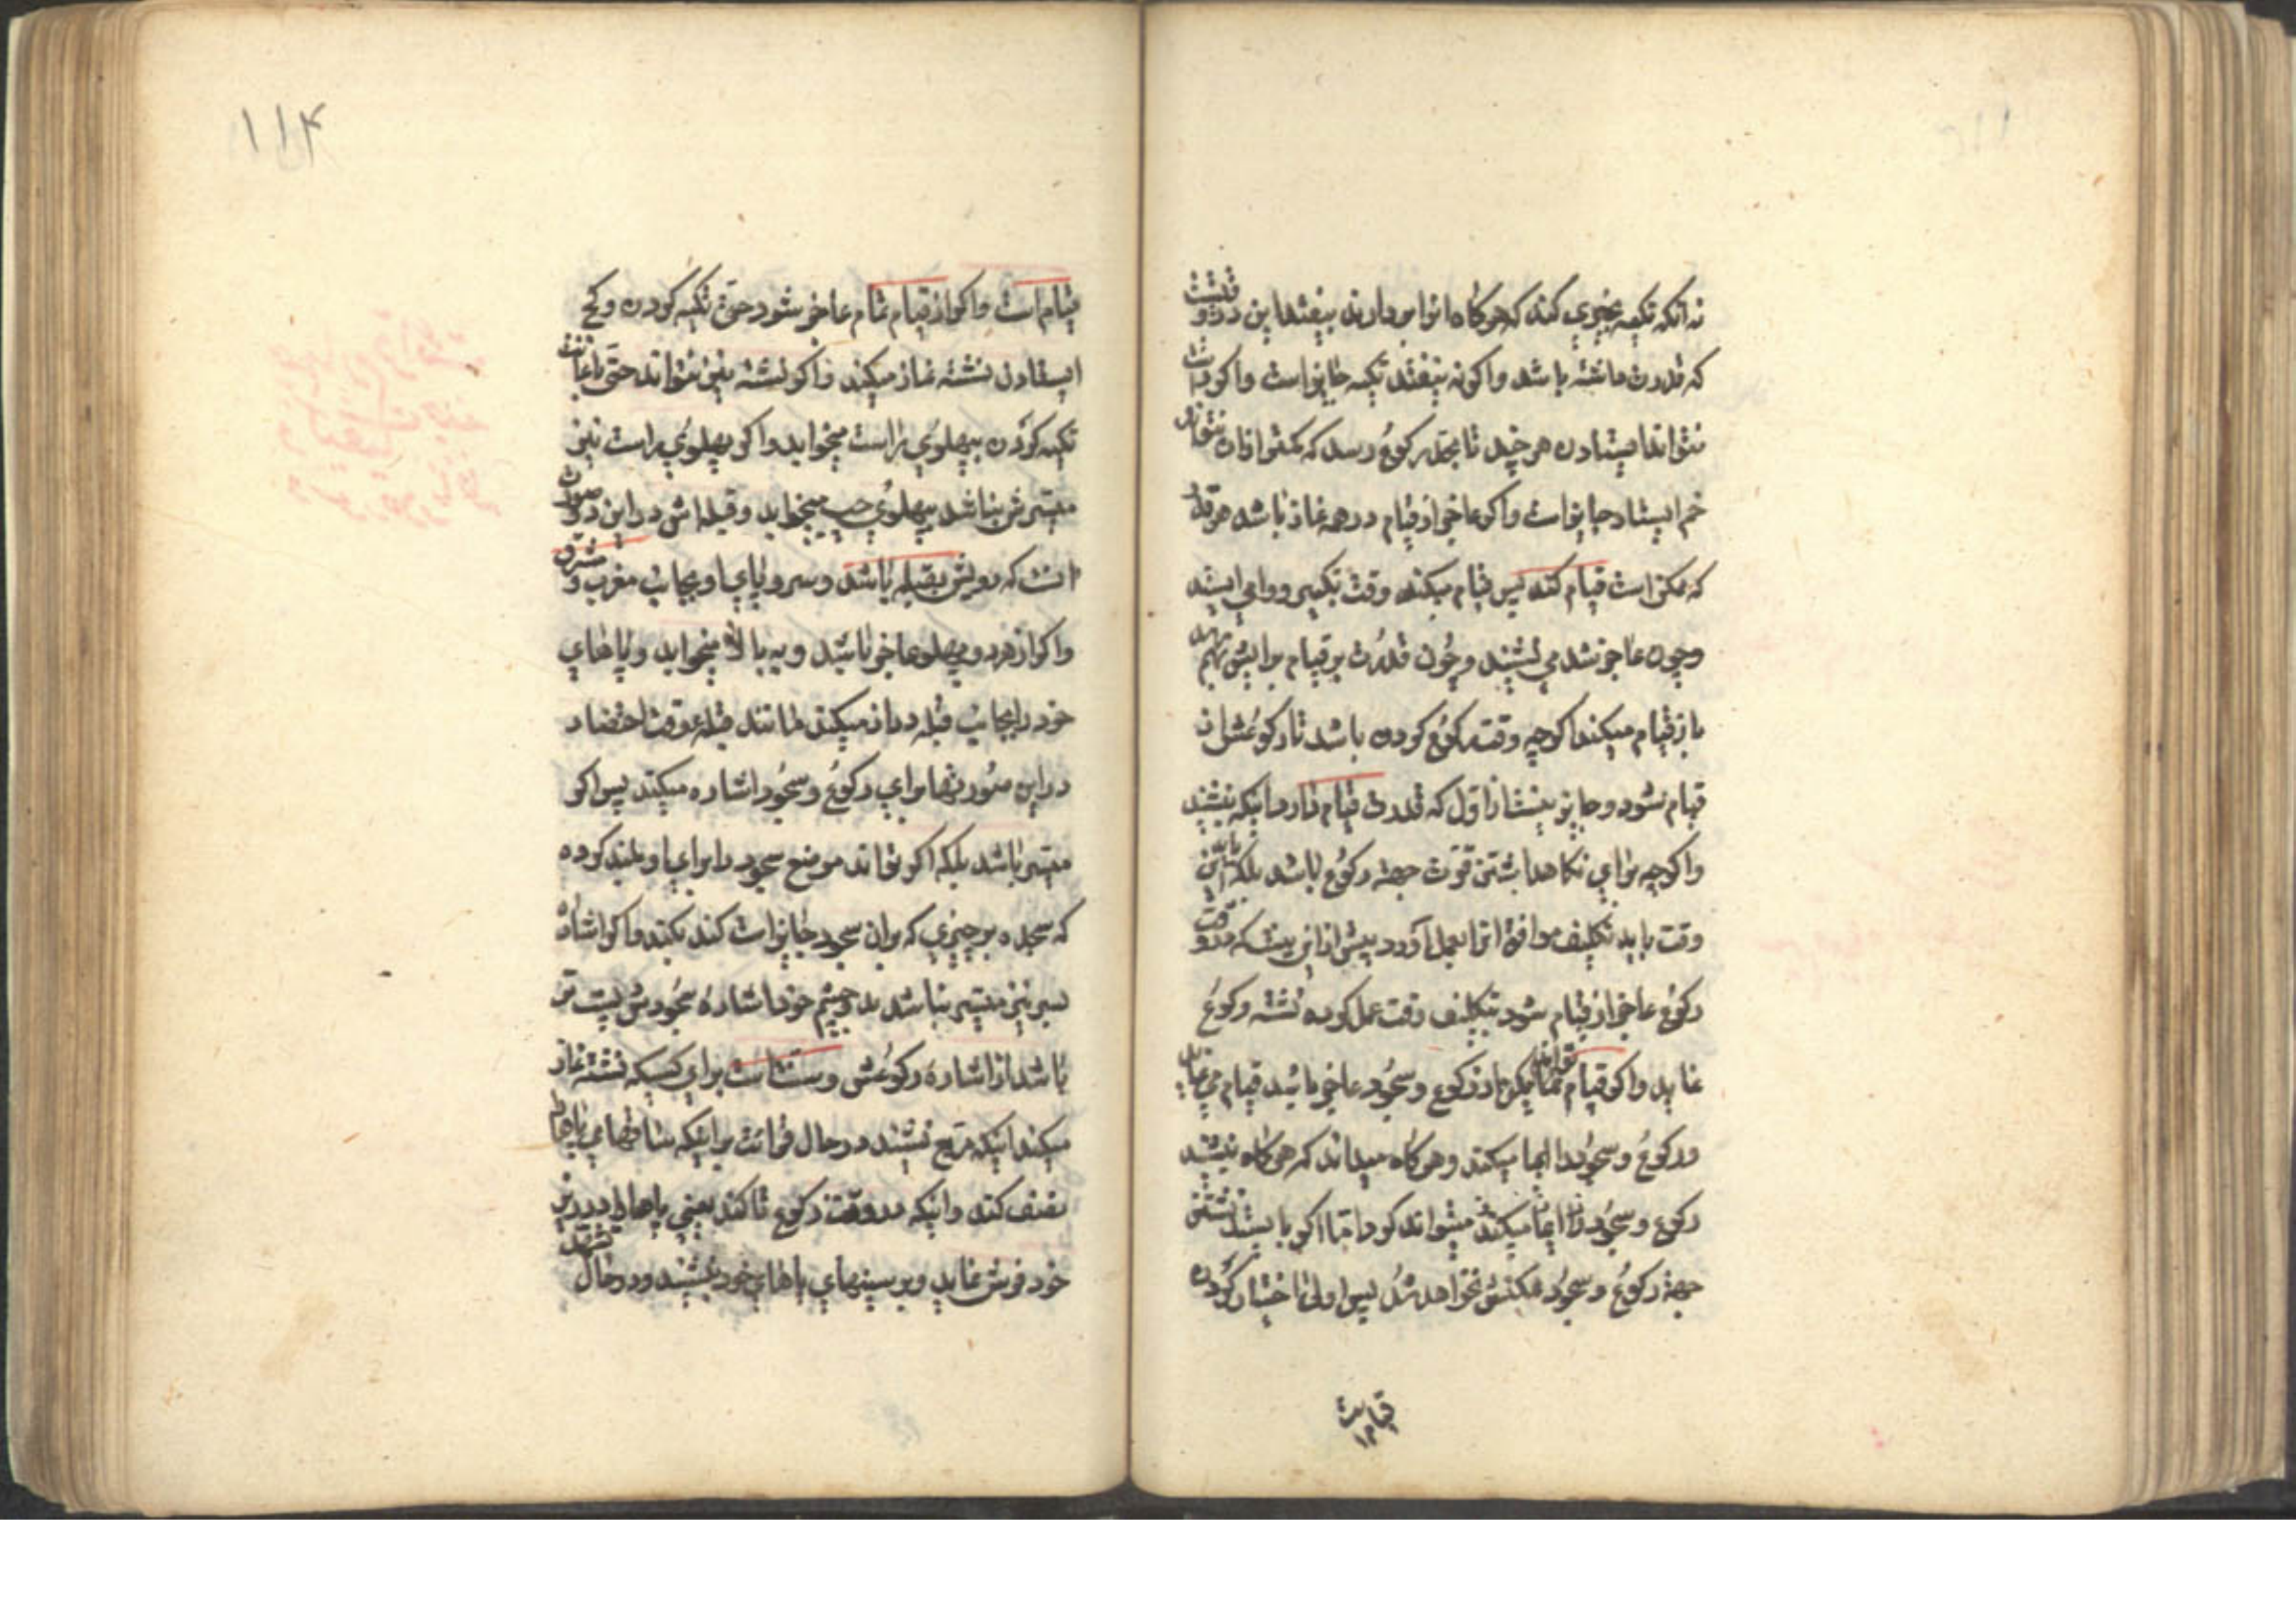 نه آنکه تکیه بچیزی کند که هرگاه انرا بردارند بیفتد این در وقتیست
که قدرت داشته باشد و اگر نه بیفتد تکیه جایز است و اگر راست
نتواند ایستادن هر چند تا بحد رکوع رسد که کمتر از ان نتواند
خم ایستاد جایز است و اگر عاجز از قیام در همه نماز باشد هر قدر
که ممکن است قیام کند پس قیام میکند وقت تکبیر و وامی ایستد
و چون عاجز شد می نشیند و چون قدرت بر قیام برایش بهم
باز قیام میکند اگر چه وقت رکوع کرده باشد تا رکوعش از
قیام شود و جایز نیست از اول که قدرت قیام دارد اینکه بنشیند
و اگر چه برای نگاهداشتن قوت جهة رکوع باشد بلکه باید این
وقت باید تکلیف موافق انرا بعمل آورد پیش از این نیست که در وقت
رکوع عاجز از قیام شود بتکلیف وقت عمل کرده نشسته رکوع
نماید و اگر قیام تواند لیکن از رکوع و سجود عاجز باشد قیام می نماید
و رکوع و سجود را ایما میکند و هرگاه میداند که هرگاه بنشیند
رکوع و سجود را ایما میکند میتواند کرد اما اگر بایستد نشستن
جهة رکوع و سجود ممکنش نخواهد شد پس اولی اختیار کردن
قیام است
قیام است و اگر از قیام تمام عاجز شود حتی تکیه کردن و کج
ایستادن نشسته نماز میکند و اگر نشسته نیز نتواند حتی باعانت
تکیه کردن بپهلوی راست میخوابد و اگر پهلوی راست نیز
میسرش نباشد بپهلوی چپ میخوابد و قبله اش در این دو صورت
انست که رویش بقبله باشد و سر و پای او بجانب مغرب و مشرق
و اگر از هر دو پهلو عاجز باشد رو به بالا میخوابد و پاهای
خود را بجانب قبله دراز میکند مانند قبله وقت احتضار
در این صورتها برای رکوع و سجود اشاره میکند پس اگر
میسر باشد بلکه اگر تواند موضع سجود را برای او بلند کرده
که سجده بر چیزی که بران سجود جایز است کند بکند و اگر اشاره
بسر نیز میسر نباشد بدو چشم خود اشاره سجودش پست تر
باشد از اشاره رکوعش و سنت است برای کسیکه نشسته نماز
میکند اینکه مربع نشیند در حال قرائت برای اینکه ساقهای پاها را
نصب کند و اینکه در وقت رکوع تا کند یعنی پاها را در زیر
خود فرش نماید و بر سینهای پاهای خود بنشیند و در حال تشهد